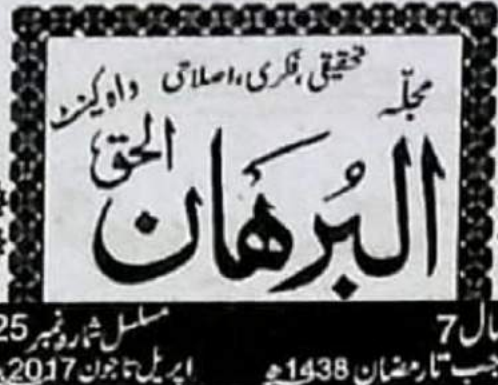 مجلّہ تحقیقی، فکری، اصلاحی واہ کینٹ
البُرھان الحق
سال 7 مسلسل شمارہ نمبر 25
رجب تا رمضان 1438ھ اپریل تا جون 2017ء